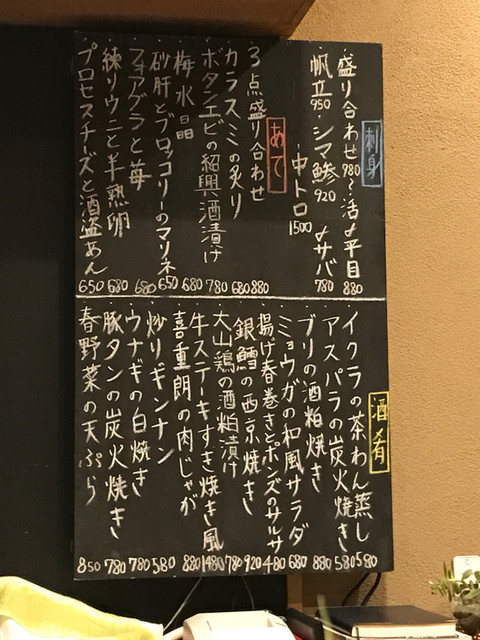 刺身
・盛り合わせ 980～・活〆平目 880
・帆立 950・シマ鯵 920 ・〆サバ 780
・中トロ 1500
あて
・3点盛り合わせ 880
・カラスミの炙り 680
・ボタンエビの紹興酒漬け 780
・梅水晶 680
・砂肝とブロッコリーのマリネ 650
・フォアグラと苺 680
・練りウニと半熟卵 680
・プロセスチーズと酒盗あん 650
酒肴
・イクラの茶わん蒸し 580
・アスパラの炭火焼き 580
・ブリの酒粕焼き 880
・ミョウガの和風サラダ 680
・揚げ春巻きとポンズのサルサ 480
・銀鱈の西京焼き 920
・大山鶏の酒粕漬け 780
・牛ステーキすき焼き風 1480
・喜重朗の肉じゃが 880
・炒りギンナン 580
・ウナギの白焼き 780
・豚タンの炭火焼き 780
・春野菜の天ぷら 850